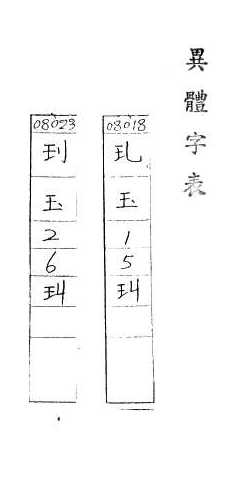 異體字表
08018
玉
1
5
玌
08023
玉
2
6
玌